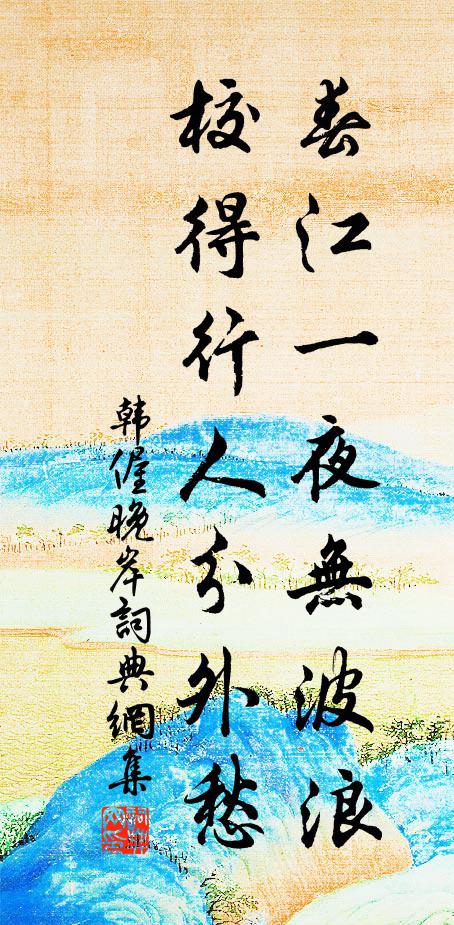 春江一夜無波浪
校得行人分外愁
韓偓晚岸詞典網集